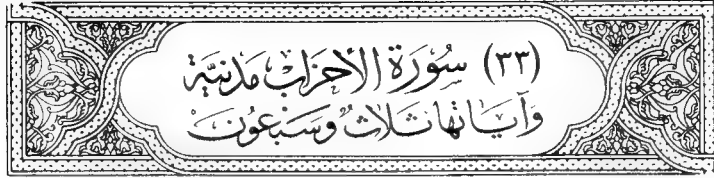 (٣٣) سُورَة الأحزَابْ مَدَنيَّة
وَآيَاتهَا ثَلاثٌ وَسَبْعُونَ